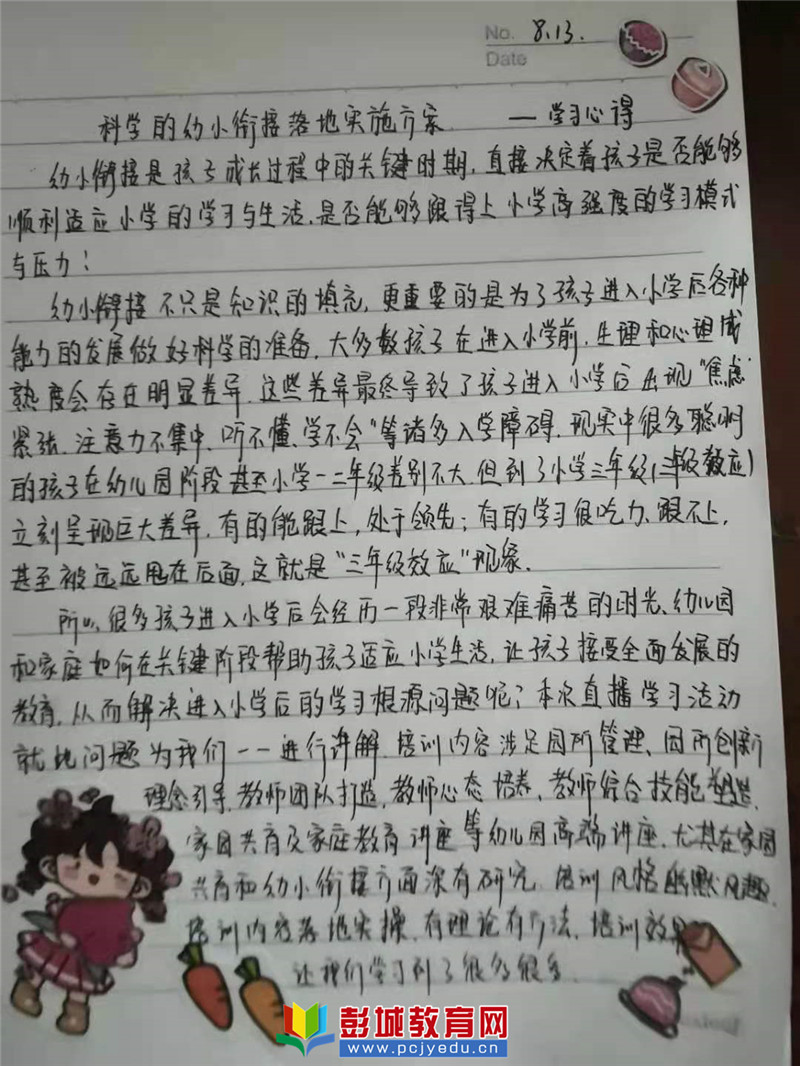 No. 8.13.
Date
科学的幼小衔接落地实施方案 — 学习心得
幼小衔接是孩子成长过程中的关键时期，直接决定着孩子是否能够
顺利适应小学的学习与生活，是否能够跟得上小学高强度的学习模式
与压力！
幼小衔接不只是知识的填充，更重要的是为了孩子进入小学后各种
能力的发展做好科学的准备，大多数孩子在进入小学前，生理和心理成
熟度会存在明显差异，这些差异最终导致了孩子进入小学后出现“焦虑
紧张、注意力不集中、听不懂、学不会”等诸多入学障碍，现实中很多聪明
的孩子在幼儿园阶段甚至小学一二年级差别不大，但到了小学三年级(三年级效应)
立刻呈现巨大差异，有的能跟上，处于领先；有的学习很吃力、跟不上，
甚至被远远甩在后面，这就是“三年级效应”现象。
所以，很多孩子进入小学后会经历一段非常艰难痛苦的时光、幼儿园
和家庭如何在关键阶段帮助孩子适应小学生活，让孩子接受全面发展的
教育，从而解决进入小学后的学习根源问题呢？本次直播学习活动
就此问题为我们一一进行讲解，培训内容涉足园所管理、园所创新
理念引导、教师团队打造，教师心态培养、教师综合技能塑造，
家园共育及家庭教育讲座等幼儿园高端讲座，尤其在家园
共育和幼小衔接方面深有研究，培训风格幽默风趣，
培训内容落地实操，有理论有方法，培训效果
让我们学习到了很多很多。
彭城教育网
www.pcjyedu.cn